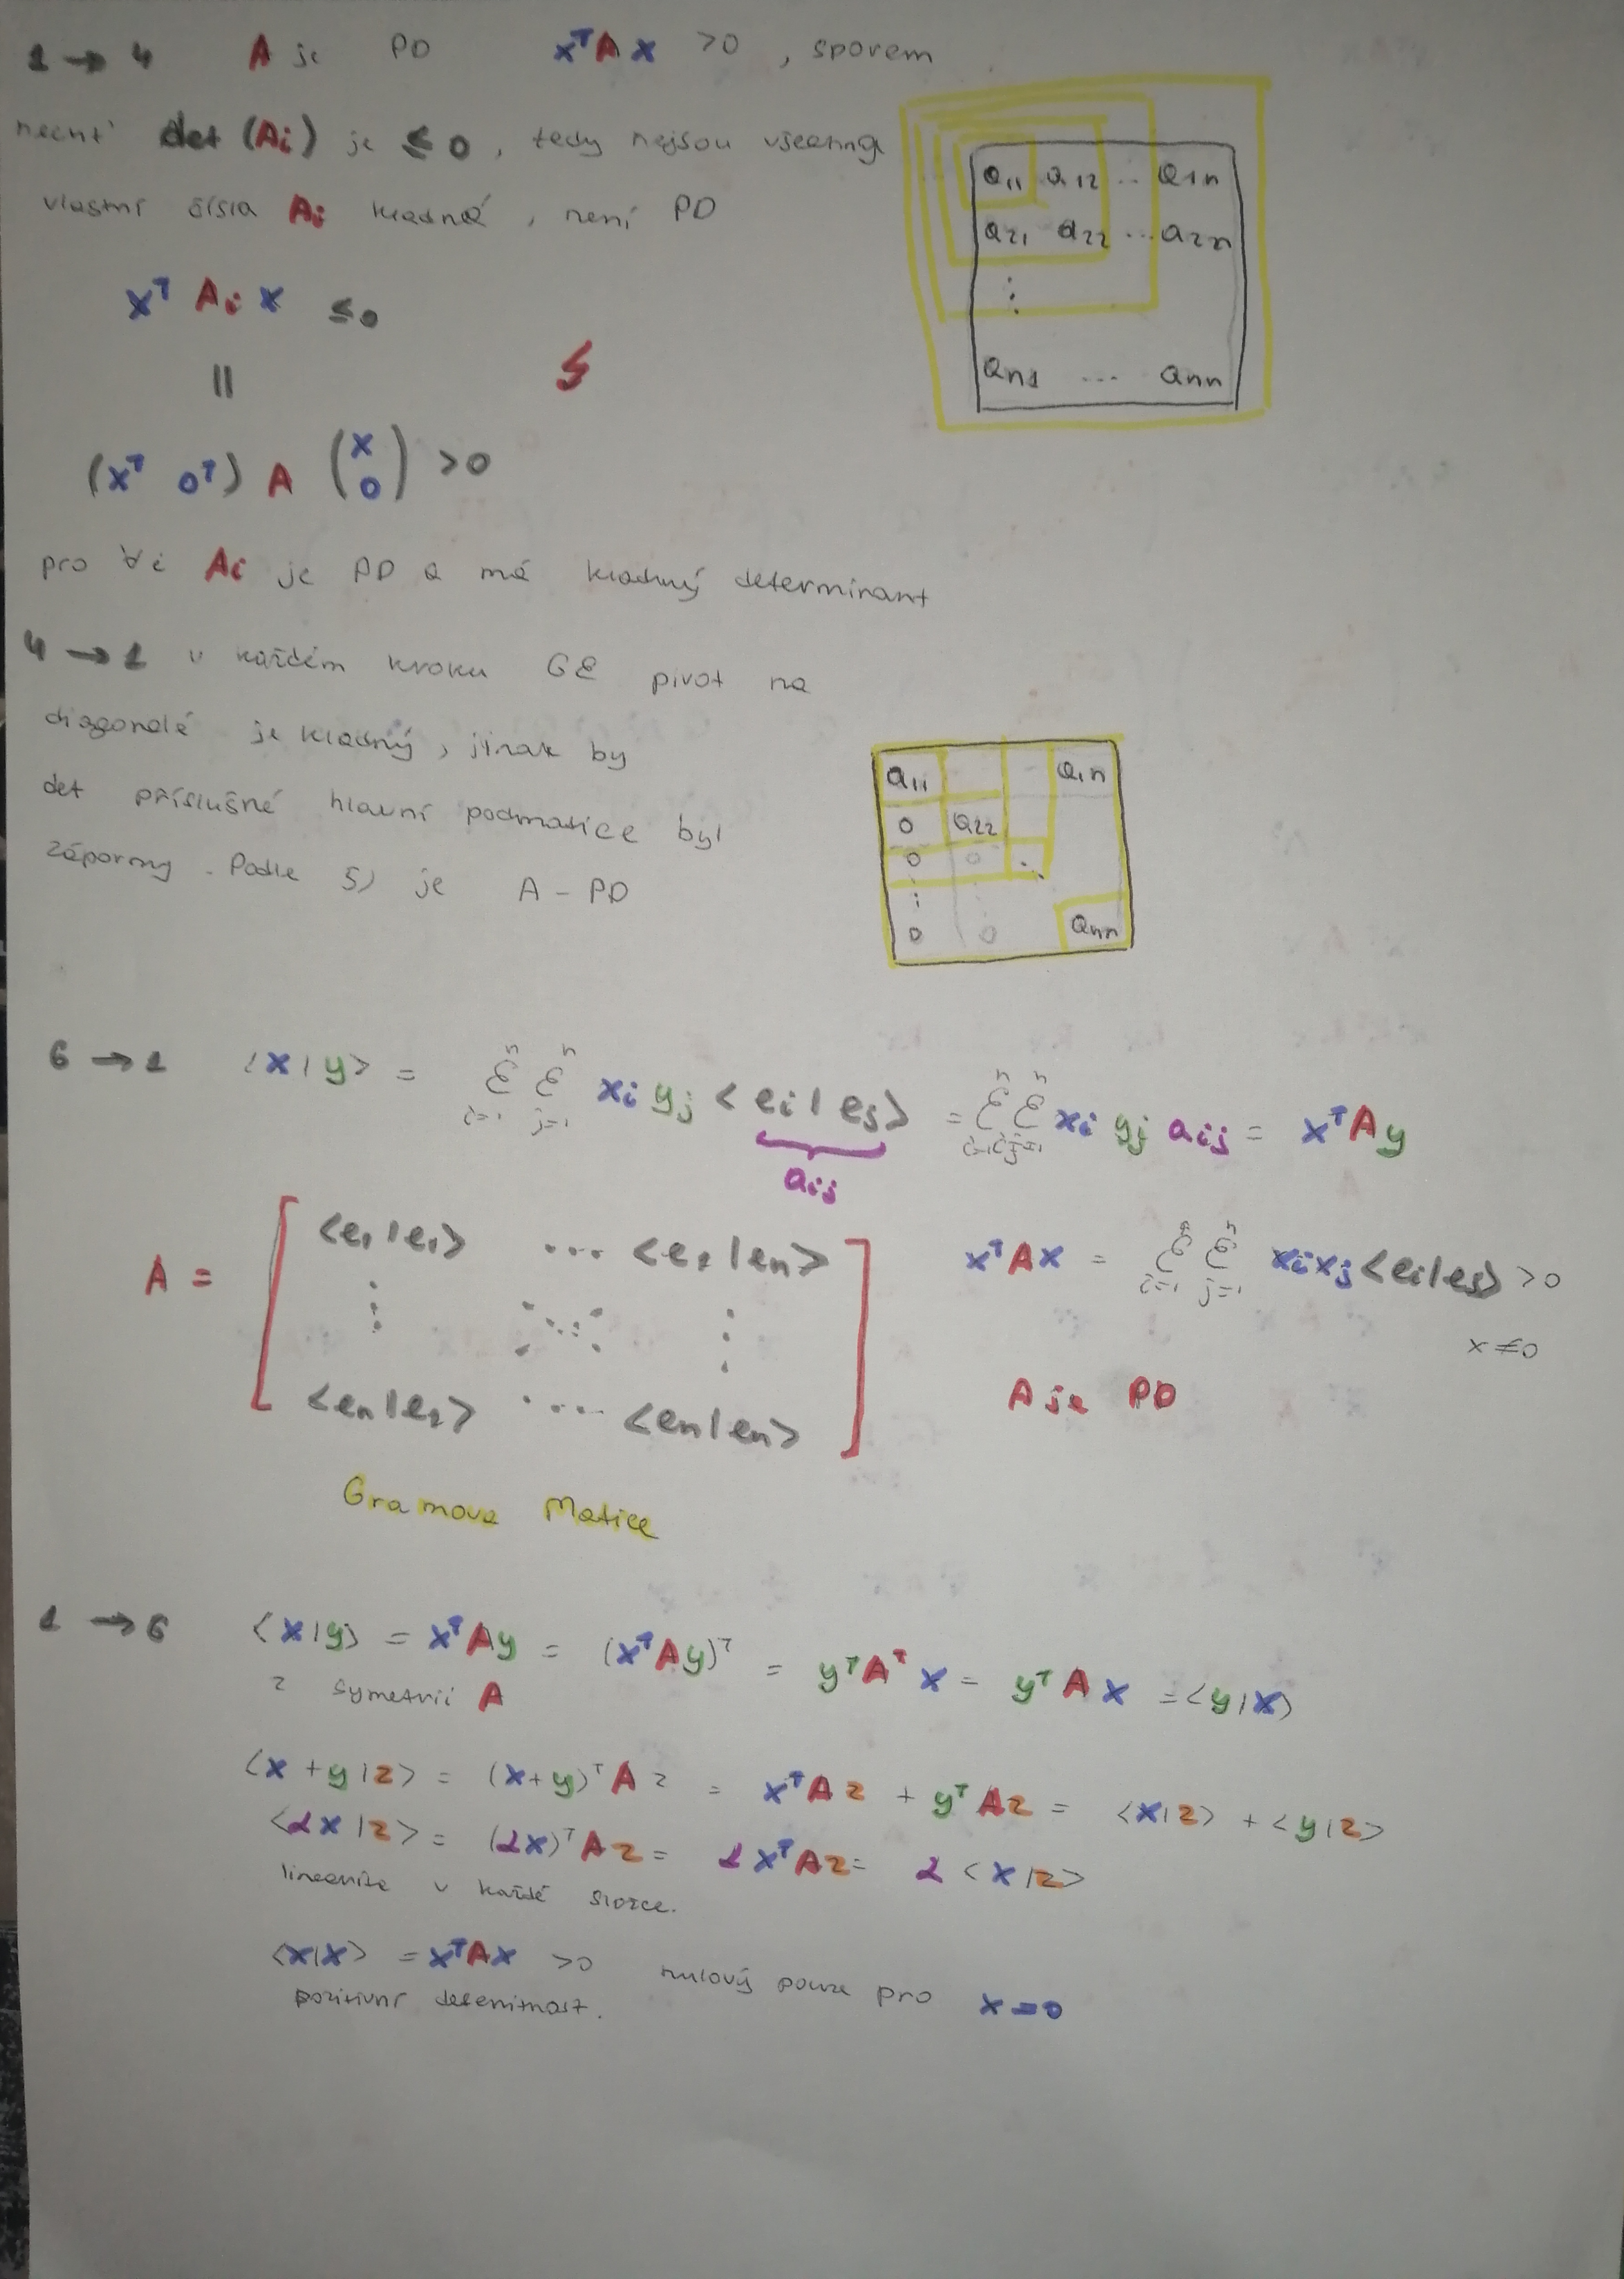 1 → 4 A je PD xᵀAx >0 , sporem
nechť det (Ai) je ≤ 0 , tedy nejsou všechny
vlastní čísla Ai kladná , není PD
xᵀ Ai x ≤0
||
(xᵀ 0ᵀ) A (x 0) >0
a11 a12 ... a1n
a21 a22 ... a2n
⋮
an1 ... ann
pro ∀i Ai je PD a má kladný determinant
4 → 1 v každém kroku GE pivot na
diagonále je kladný , jinak by
det příslušné hlavní podmatice byl
záporný . Podle 5) je A - PD
a11 a1n
0 a22
0 0 ⋱
⋮
0 0 ann
6 → 1 <x|y> = Σⁿᵢ₌₁ Σⁿⱼ₌₁ xi yj <ei|ej> = Σⁿᵢ₌₁ Σⁿⱼ₌₁ xi yj aij = xᵀAy
aij
A = [ <e1|e1> ... <e1|en>
⋮ ⋱ ⋮
<en|e1> .... <en|en> ]
xᵀAx = Σⁿᵢ₌₁ Σⁿⱼ₌₁ xixj<ei|ej> >0
x≠0
A je PD
Gramova Matice
1 → 6 <x|y> = xᵀAy = (xᵀAy)ᵀ = yᵀAᵀx = yᵀAx = <y|x>
z symetrii A
<x+y|z> = (x+y)ᵀAz = xᵀAz + yᵀAz = <x|z> + <y|z>
<αx|z> = (αx)ᵀAz = αxᵀAz = α <x|z>
v každé složce.
<x|x> = xᵀAx >0 nulový pouze pro x=0
pozitivní defenitnost.